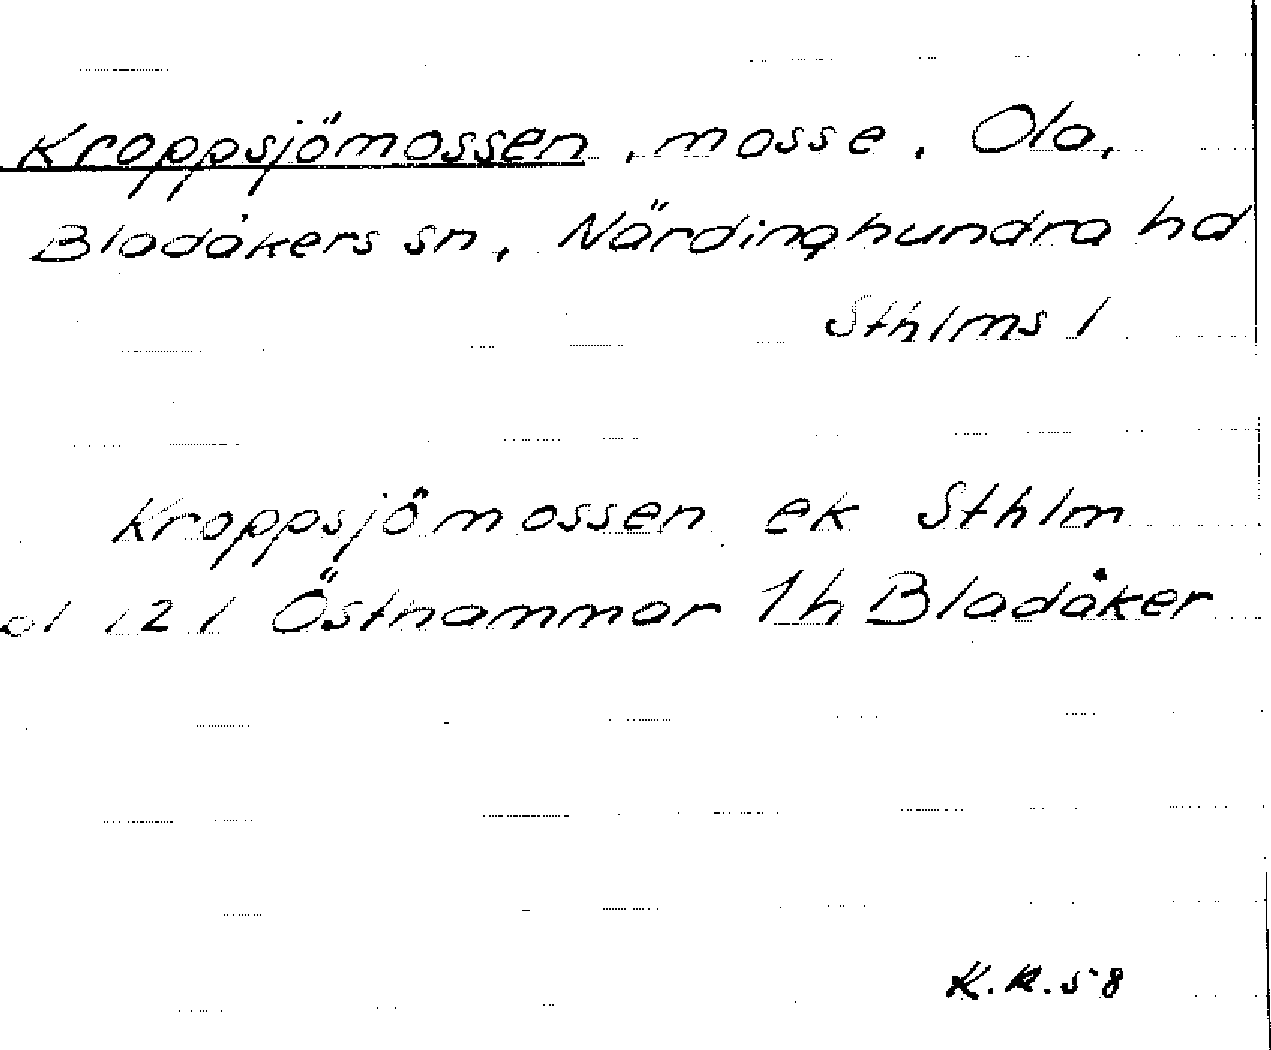 Kroppsjömossen, mosse. Ola,
Bladåkers sn, Närdinghundra hd
Sthlms l
Kroppsjömossen ek Sthlm
bl 12 l Östhammar 1h Bladåker
K.R.58